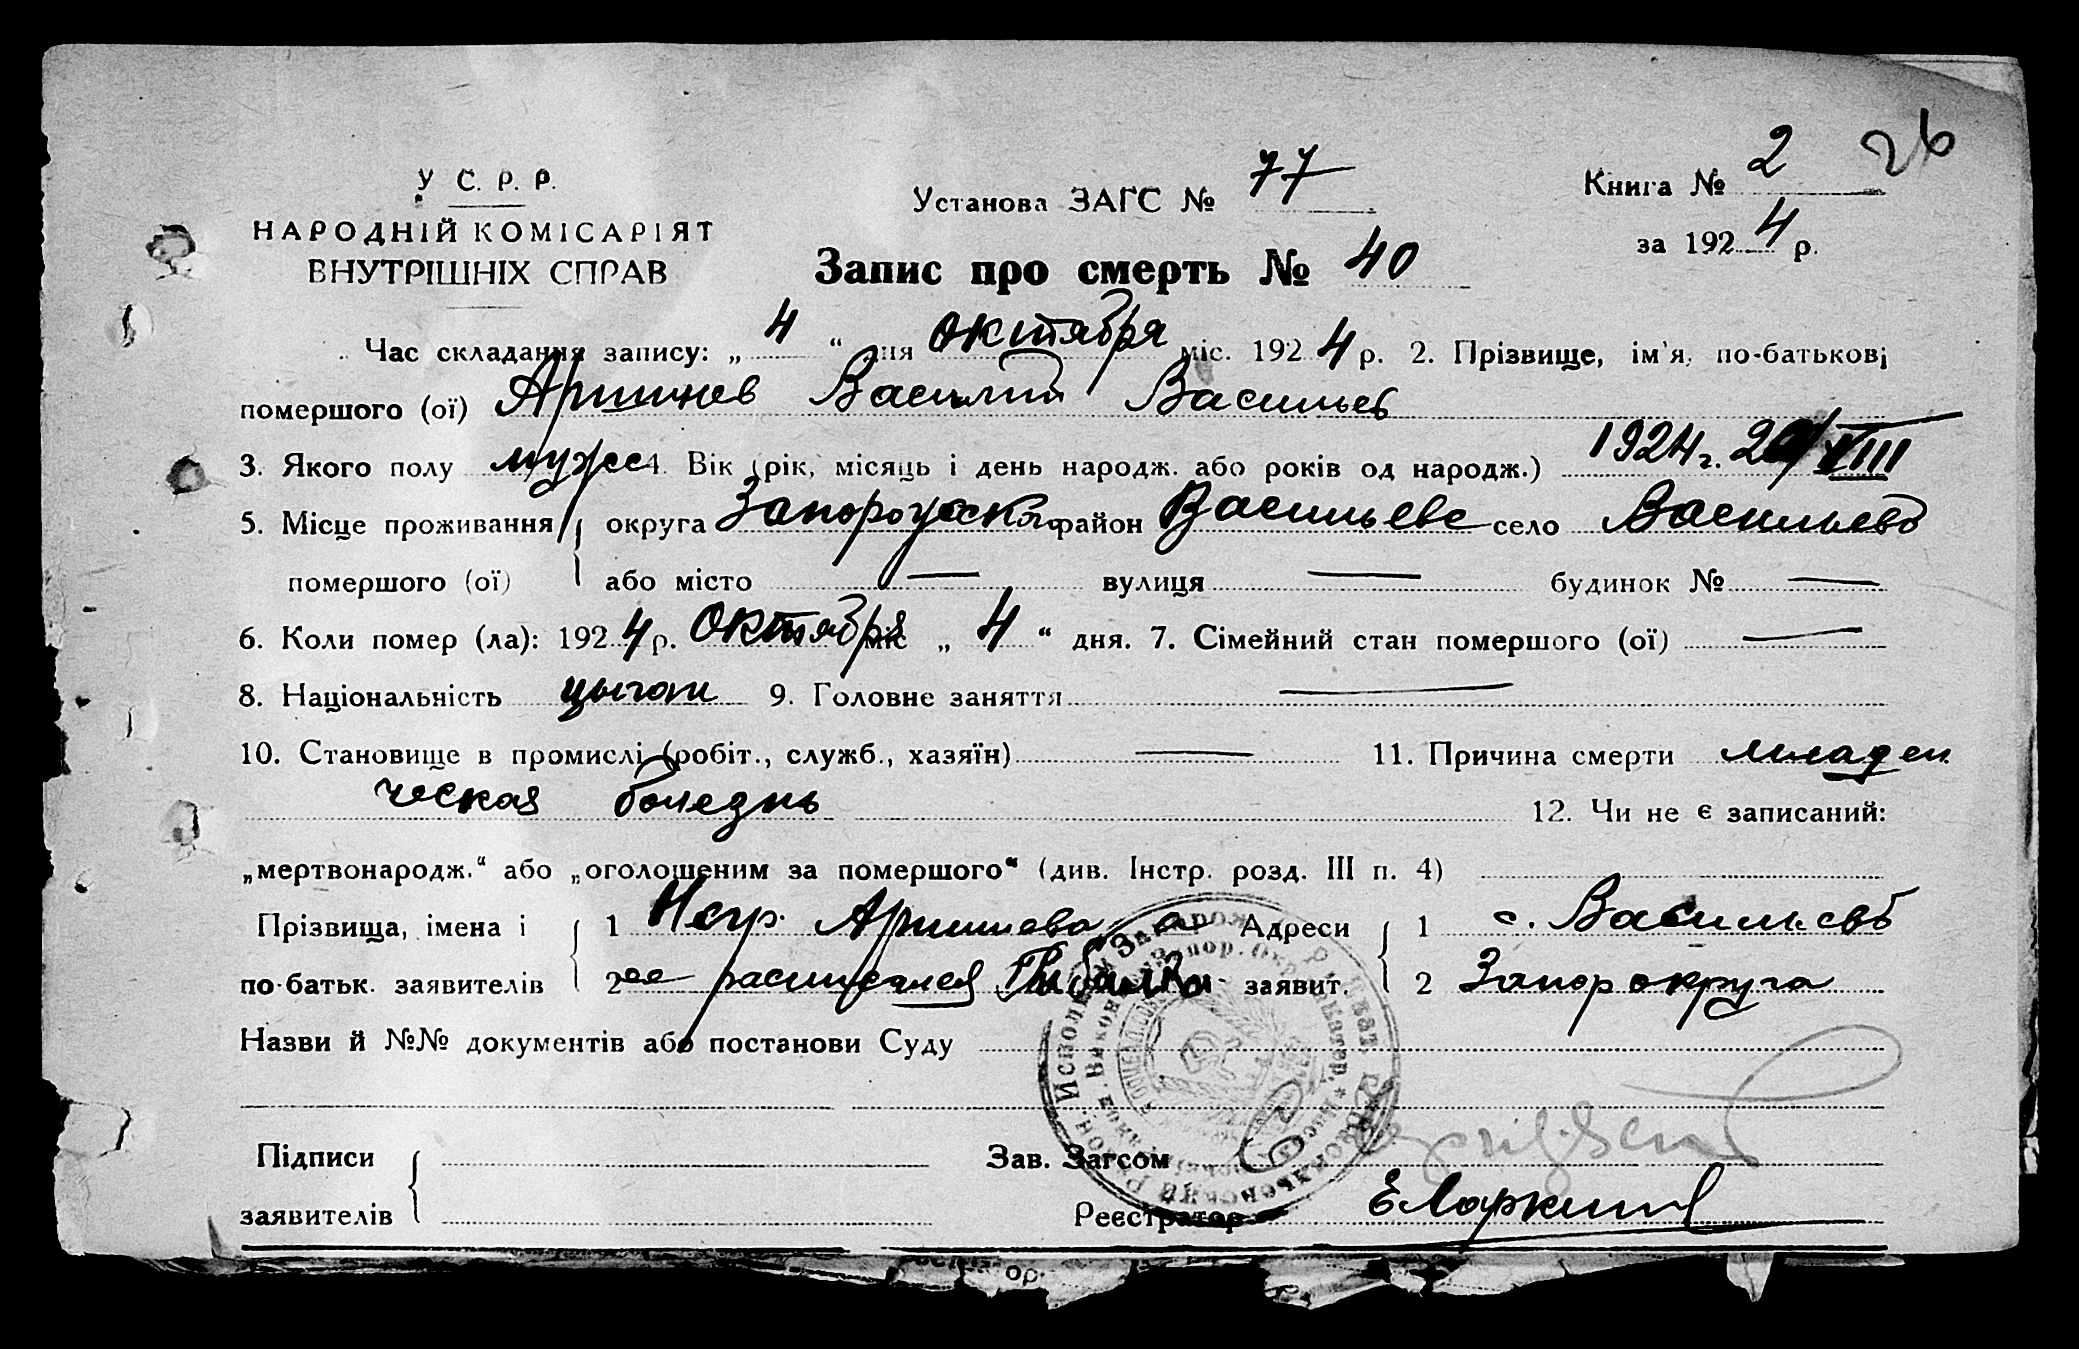 26
У С. Р. Р.
Установа ЗАГС № 77
Книга № 2
НАРОДНІЙ КОМІСАРІЯТ
за 1924 р.
ВНУТРІШНІХ СПРАВ
Запис про смерть № 40
Час складання запису: „ 4 “ дня октября міс. 1924 р. 2. Прізвище, ім'я, по-батькові
помершого (ої) Василий Васильев
3. Якого полу мужс 4. Вік (рік, місяць і день народж. або років од народж.) 1924 г.
5. Місце проживання округа район Васильевс село Васильевв
помершого (ої) або місто — вулиця — будинок № —
6. Коли помер (ла): 1924 р. октября міс „ 4 “ дня. 7. Сімейний стан помершого (ої) —
8. Національність цыган 9. Головне заняття —
10. Становище в промислі (робіт., служб., хазяїн) — 11. Причина смерти младен
ческая болезнь 12. Чи не є записаний:
„мертвонародж.“ або „оголошеним за помершого“ (див. Інстр. розд. III п. 4)
Прізвища, імена і 1 Негр. Адреси 1 с. Васильевв
по-батьк. заявителів 2 ее расписался заявит. 2 Запор округа
Назви й №№ документів або постанови Суду
Підписи Зав. Загсом
заявителів Реєстратор